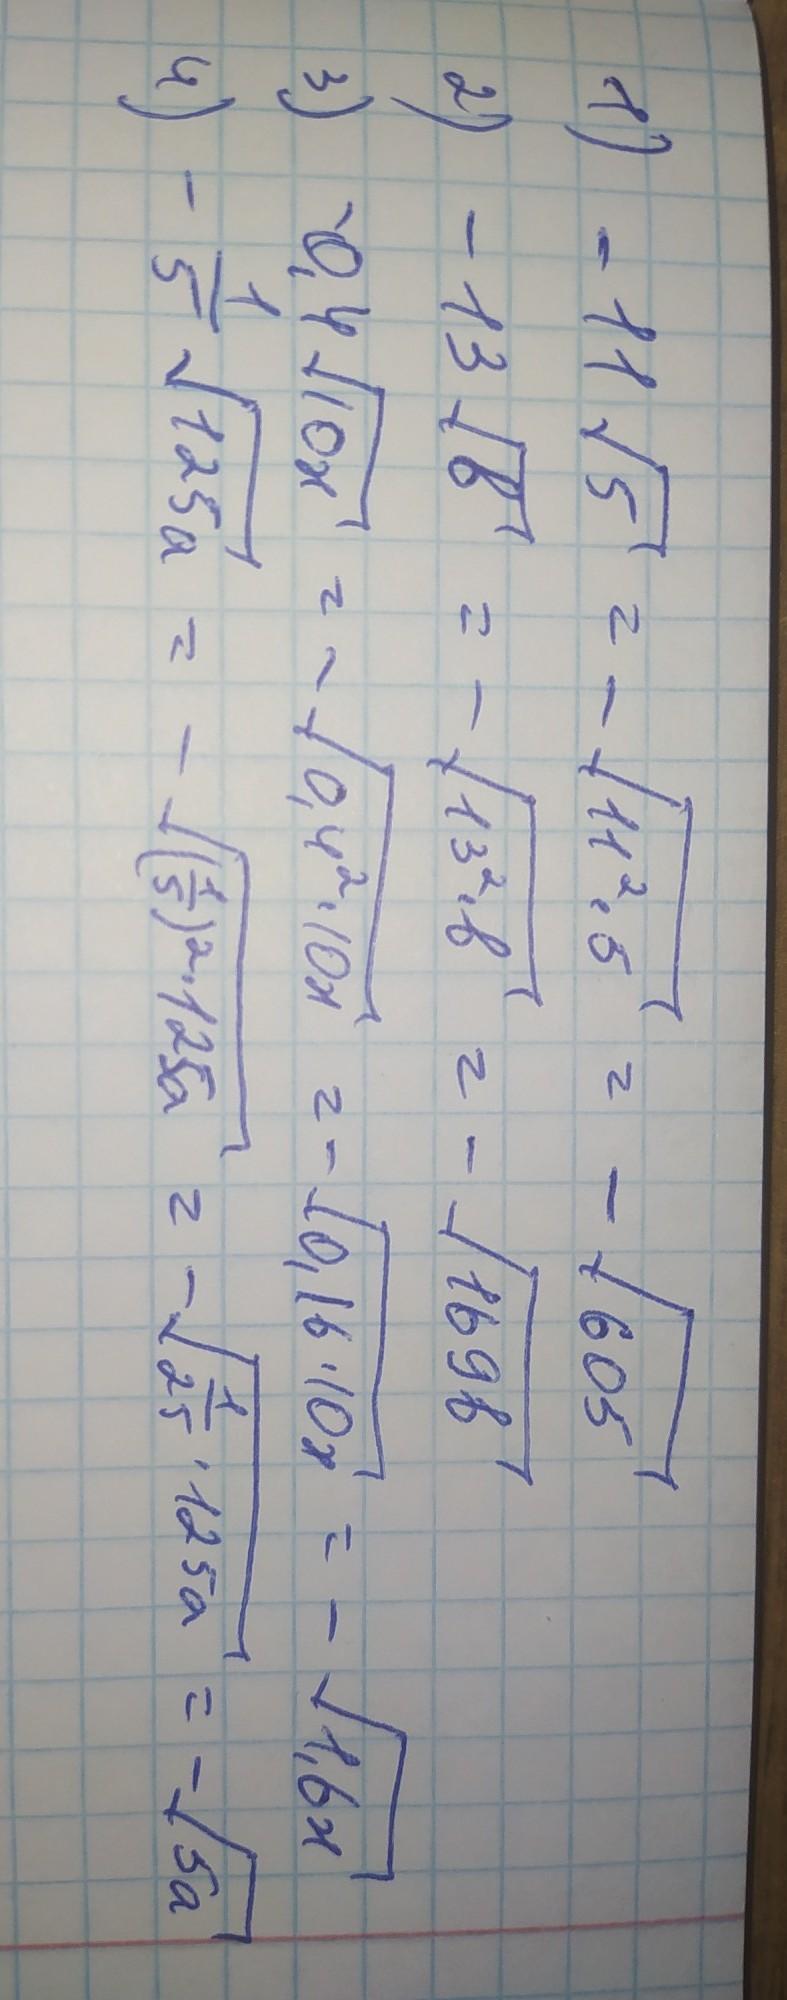 1) -11√5 = -√11²·5 = -√605
2) -13√b = -√13²·b = -√169b
3) -0,4√10x = -√0,4²·10x = -√0,16·10x = -√1,6x
4) -1/5√125a = -√(1/5)²·125a = -√1/25·125a = -√5a